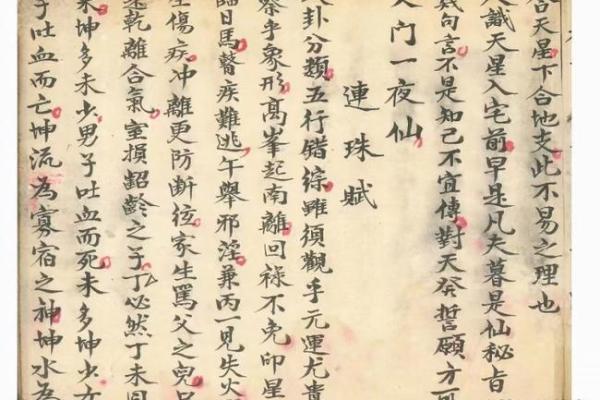 合天星下合地支此不易之理也
人識天星入宅前早是凡夫暮是仙秘旨
幾句言不是知己不宜傳對天発誓願方可
入门一夜仙
連珠賦
八卦分類五行錯綜雖須觀乎元運尤貴
察乎象形高峯起南離回祿不免印星
臨日馬瞽疾難逃午舉邪淫兼丙一見失火
生傷疾冲離更防断弦家生罵父之兒
逢乾離合氣室損龆齡之子丁必然丁未同
未坤多未少男子吐血而死未多坤少女
子吐血而亡坤流為寡宿之神坤水為